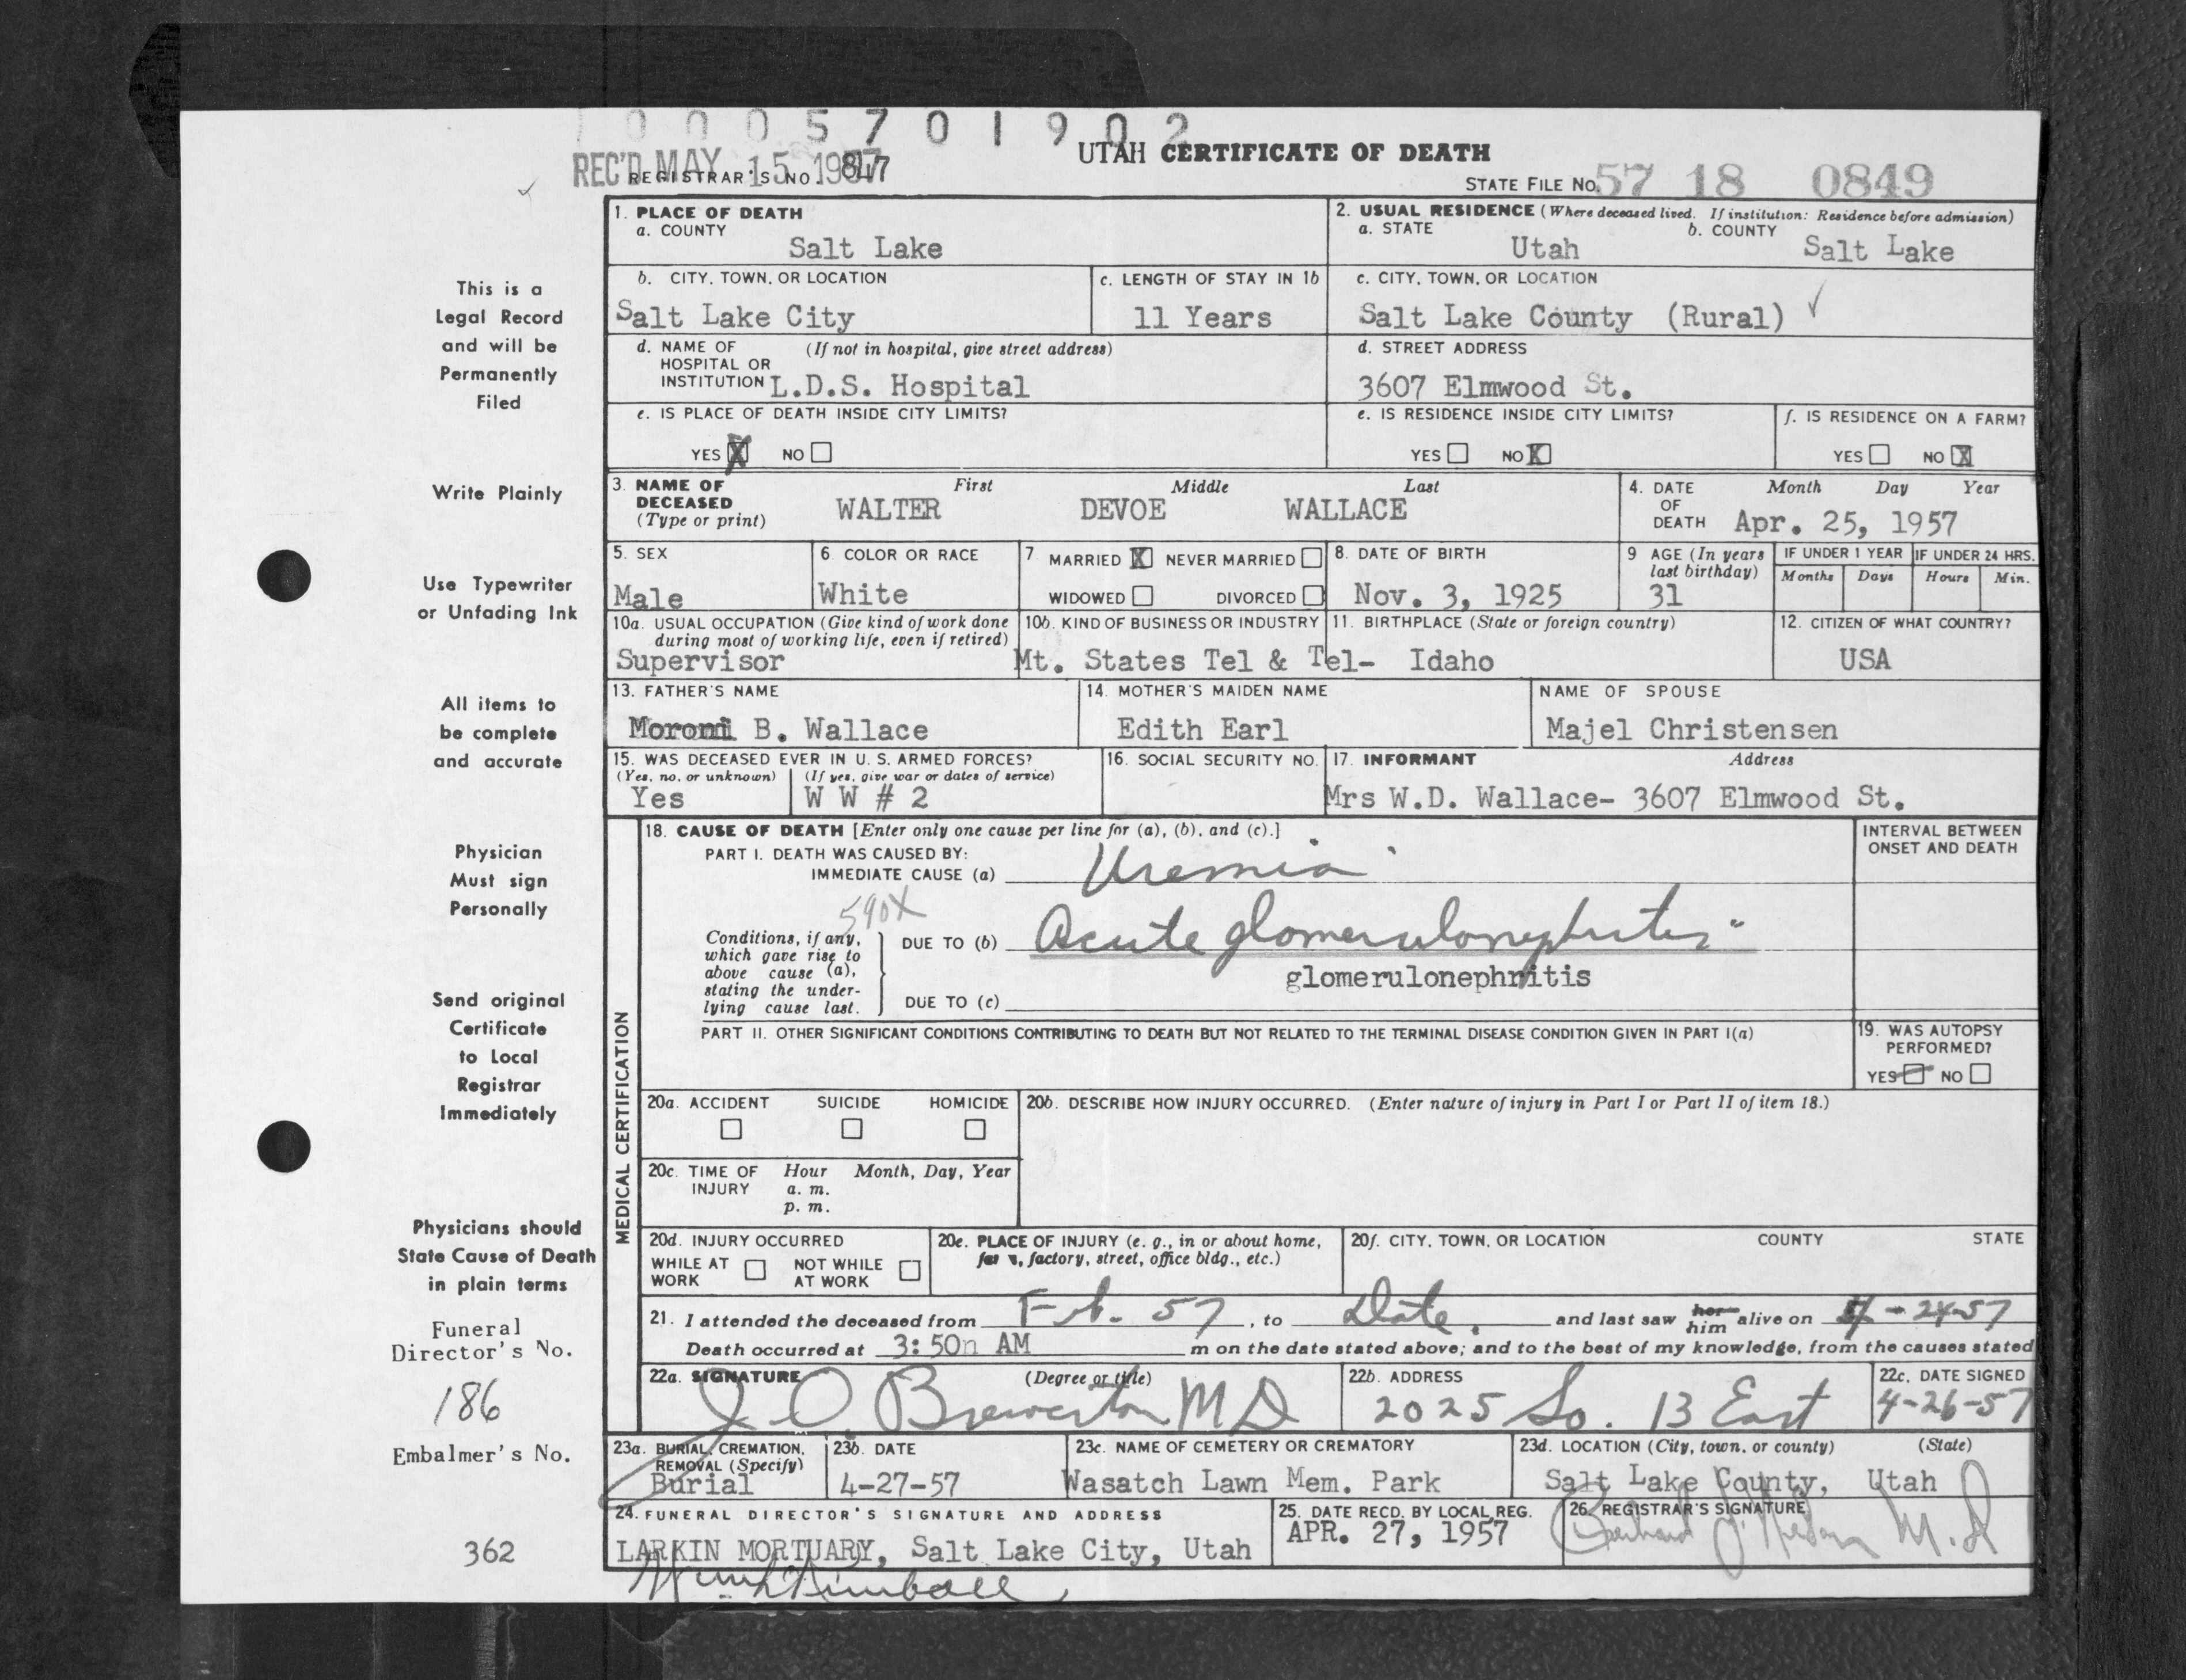 0 0 0 5 7 0 1 9 0 2
UTAH CERTIFICATE OF DEATH
REC'D MAY 15 1957
REGISTRAR'S NO. 847
STATE FILE NO. 57 18 0849
1. PLACE OF DEATH
a. COUNTY
Salt Lake
2. USUAL RESIDENCE (Where deceased lived. If institution: Residence before admission)
a. STATE b. COUNTY
Utah Salt Lake
b. CITY, TOWN, OR LOCATION
Salt Lake City
c. LENGTH OF STAY IN 1b
11 Years
c. CITY, TOWN, OR LOCATION
Salt Lake County (Rural) ✓
d. NAME OF (If not in hospital, give street address)
HOSPITAL OR
INSTITUTION L.D.S. Hospital
d. STREET ADDRESS
3607 Elmwood St.
e. IS PLACE OF DEATH INSIDE CITY LIMITS?
YES ☒ NO ☐
e. IS RESIDENCE INSIDE CITY LIMITS?
YES ☐ NO ☒
f. IS RESIDENCE ON A FARM?
YES ☐ NO ☒
3. NAME OF First Middle Last
DECEASED
(Type or print)
WALTER DEVOE WALLACE
4. DATE Month Day Year
OF
DEATH Apr. 25, 1957
5. SEX
Male
6. COLOR OR RACE
White
7. MARRIED ☒ NEVER MARRIED ☐
WIDOWED ☐ DIVORCED ☐
8. DATE OF BIRTH
Nov. 3, 1925
9 AGE (In years
last birthday)
31
IF UNDER 1 YEAR
Months Days
IF UNDER 24 HRS.
Hours Min.
10a. USUAL OCCUPATION (Give kind of work done
during most of working life, even if retired)
Supervisor
10b. KIND OF BUSINESS OR INDUSTRY
Mt. States Tel & Tel-
11. BIRTHPLACE (State or foreign country)
Idaho
12. CITIZEN OF WHAT COUNTRY?
USA
13. FATHER'S NAME
Moroni B. Wallace
14. MOTHER'S MAIDEN NAME
Edith Earl
NAME OF SPOUSE
Majel Christensen
15. WAS DECEASED EVER IN U. S. ARMED FORCES?
(Yes, no, or unknown) (If yes, give war or dates of service)
Yes W W # 2
16. SOCIAL SECURITY NO.
17. INFORMANT Address
Mrs W.D. Wallace- 3607 Elmwood St.
MEDICAL CERTIFICATION
18. CAUSE OF DEATH [Enter only one cause per line for (a), (b), and (c).]
INTERVAL BETWEEN
ONSET AND DEATH
PART I. DEATH WAS CAUSED BY:
IMMEDIATE CAUSE (a) Uremia
590X
Conditions, if any,
which gave rise to
above cause (a),
stating the under-
lying cause last.
DUE TO (b) Acute glomerulonephritis
glomerulonephritis
DUE TO (c)
PART II. OTHER SIGNIFICANT CONDITIONS CONTRIBUTING TO DEATH BUT NOT RELATED TO THE TERMINAL DISEASE CONDITION GIVEN IN PART I(a)
19. WAS AUTOPSY
PERFORMED?
YES ☐ NO ☐
20a. ACCIDENT SUICIDE HOMICIDE
☐ ☐ ☐
20b. DESCRIBE HOW INJURY OCCURRED. (Enter nature of injury in Part I or Part II of item 18.)
20c. TIME OF Hour Month, Day, Year
INJURY a. m.
p. m.
20d. INJURY OCCURRED
WHILE AT ☐ NOT WHILE ☐
WORK AT WORK
20e. PLACE OF INJURY (e. g., in or about home,
farm, factory, street, office bldg., etc.)
20f. CITY, TOWN, OR LOCATION COUNTY STATE
21. I attended the deceased from Feb. 57, to Date, and last saw her him alive on 4-24-57
Death occurred at 3:50 AM m on the date stated above; and to the best of my knowledge, from the causes stated
22a. SIGNATURE (Degree or title)
J. O. Brewerton MD
22b. ADDRESS
2025 So. 13 East
22c. DATE SIGNED
4-26-57
23a. BURIAL, CREMATION,
REMOVAL (Specify)
Burial
23b. DATE
4-27-57
23c. NAME OF CEMETERY OR CREMATORY
Wasatch Lawn Mem. Park
23d. LOCATION (City, town, or county) (State)
Salt Lake County, Utah
24. FUNERAL DIRECTOR'S SIGNATURE AND ADDRESS
LARKIN MORTUARY, Salt Lake City, Utah
Kimball
25. DATE RECD. BY LOCAL REG.
APR. 27, 1957
26. REGISTRAR'S SIGNATURE
M.D
This is a
Legal Record
and will be
Permanently
Filed
Write Plainly
Use Typewriter
or Unfading Ink
All items to
be complete
and accurate
Physician
Must sign
Personally
Send original
Certificate
to Local
Registrar
Immediately
Physicians should
State Cause of Death
in plain terms
Funeral
Director's No.
186
Embalmer's No.
362